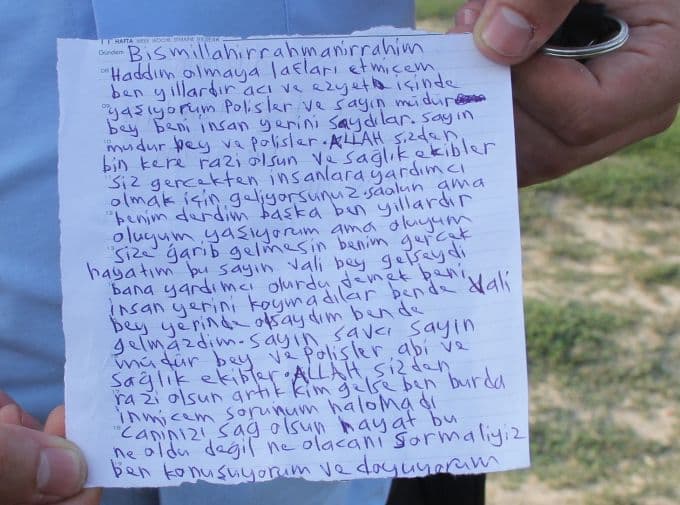 11. HAFTA WEEK WOCHE SEMAINE
Gündem Bismillahirrahmanirrahim
Haddim olmaya lasları etmicem
ben yıllardır acı ve ezyet içinde
yaşıyorum Polisler ve sayın müdür
bey beni insan yerini saydılar. sayın
mudur bey ve polisler. ALLAH sizden
bin kere razi olsun ve sağlık ekibler
siz gercekten insanlara yardımcı
olmak için geliyorsunuz. saolun ama
benim derdim başka ben yıllardır
oluyum yaşıyorum ama oluyum
size garib gelmesin benim gerçek
hayatım bu sayın vali bey gelseydi
bana yardımcı olurdu demek beni
insan yerini koymadılar bende Vali
bey yerinde olsaydım bende
gelmazdim. sayın savcı sayın
müdür bey ve Polisler abi ve
sağlık ekibler. ALLAH sizden
razi olsun artık kim gelse ben burda
inmicem sorunum halomadı
canınızı sağ olsun hayat bu
ne oldu değil ne olacanı sormaliyiz
ben konuşuyorum ve doyuyorum